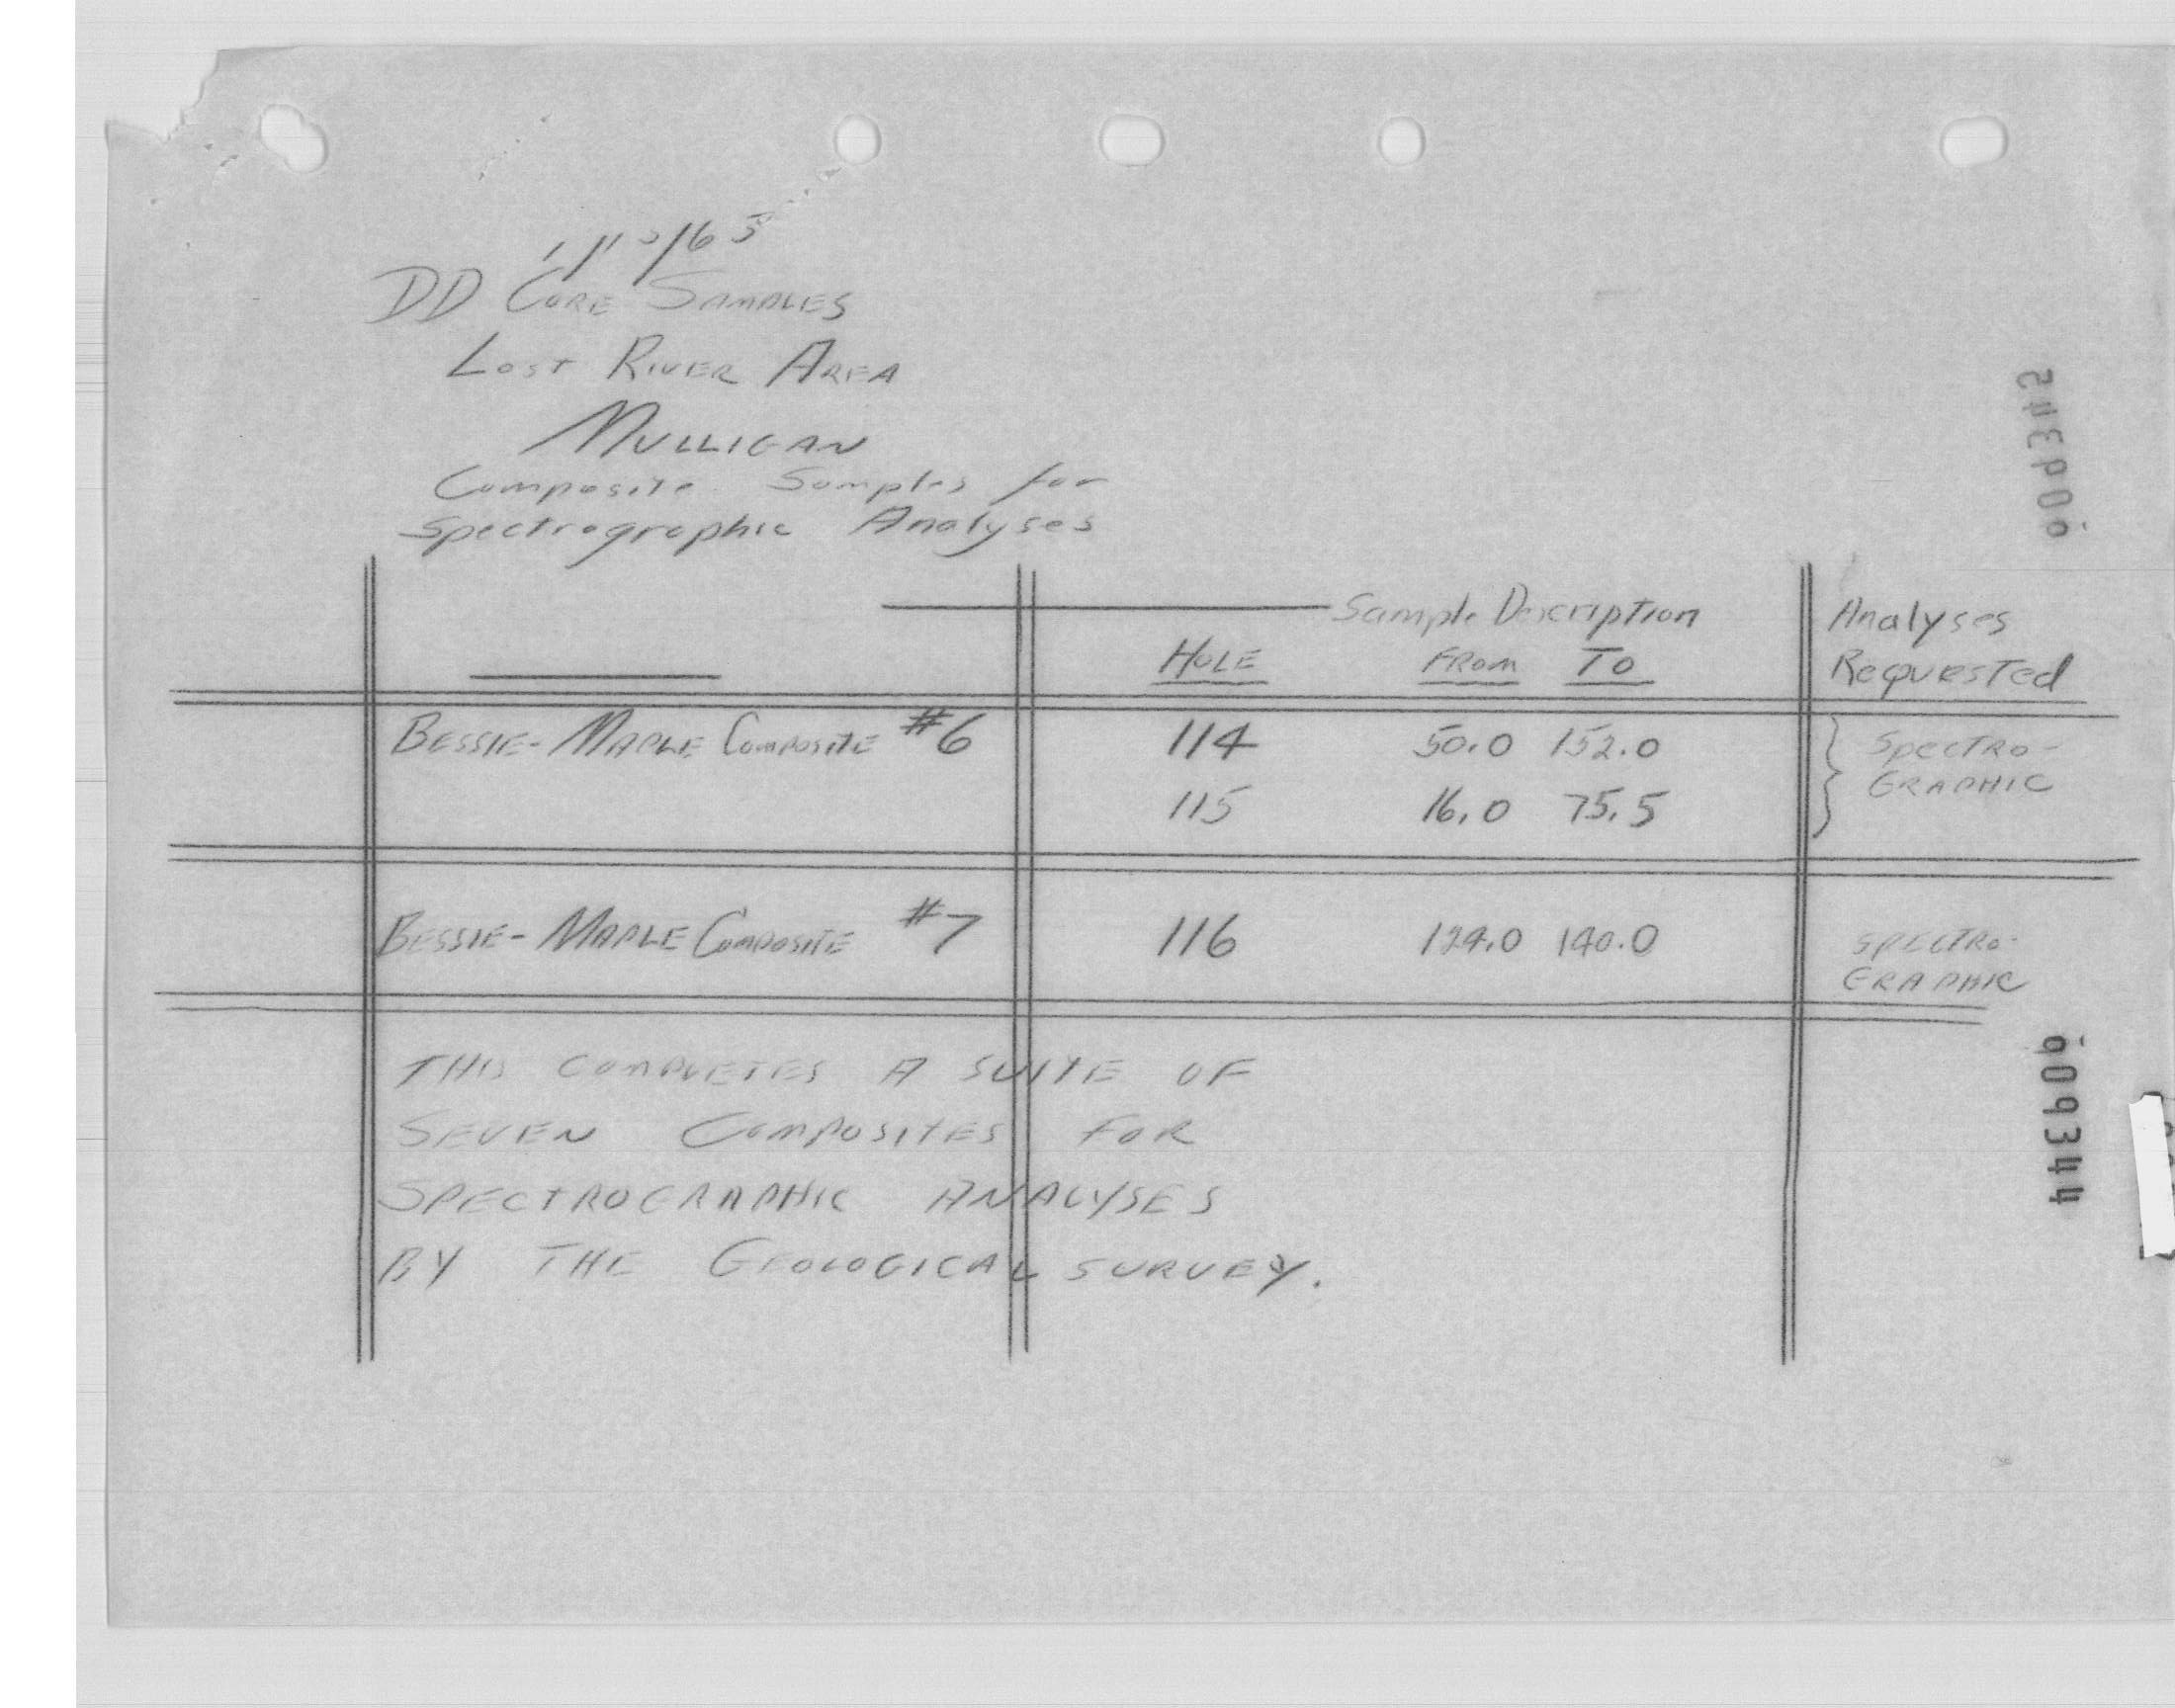 DD CORE SAMPLES
LOST RIVER AREA
MULLIGAN
Composite Samples for
Spectrographic Analyses
Sample Description
Analyses
HOLE FROM TO
Requested
BESSIE-MAPLE COMPOSITE #6 114 50.0 152.0 SPECTRO-
GRAPHIC
115 16.0 75.5
BESSIE-MAPLE COMPOSITE #7 116 140.0 SPECTRO-
GRAPHIC
THIS COMPLETES A SUITE OF
SEVEN COMPOSITES FOR
SPECTROGRAPHIC ANALYSES
BY THE GEOLOGICAL SURVEY.